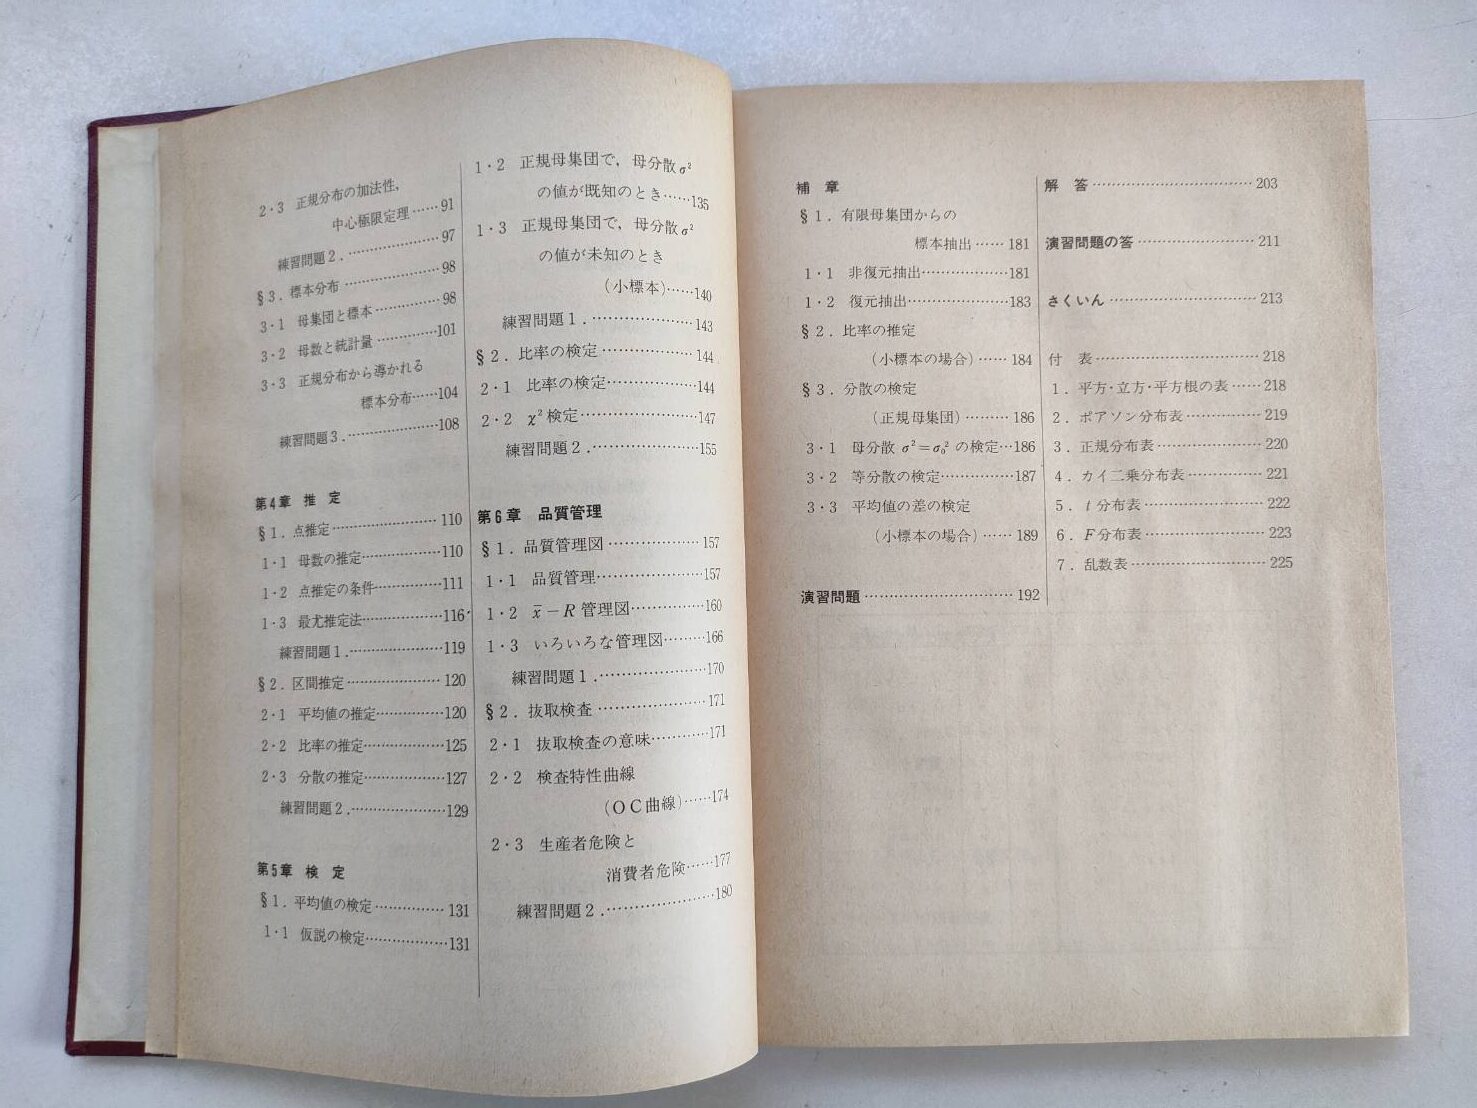 2・3 正規分布の加法性,
中心極限定理……91
練習問題2.…………………97
§3.標本分布…………………98
3・1 母集団と標本……………98
3・2 母数と統計量……………101
3・3 正規分布から導かれる
標本分布……104
練習問題3.…………………108
第4章 推 定
§1.点推定……………………110
1・1 母数の推定………………110
1・2 点推定の条件……………111
1・3 最尤推定法………………116
練習問題1.…………………119
§2.区間推定…………………120
2・1 平均値の推定……………120
2・2 比率の推定………………125
2・3 分散の推定………………127
練習問題2.…………………129
第5章 検 定
§1.平均値の検定……………131
1・1 仮説の検定………………131
1・2 正規母集団で,母分散σ²
の値が既知のとき……135
1・3 正規母集団で,母分散σ²
の値が未知のとき
(小標本)……140
練習問題1.…………………143
§2.比率の検定………………144
2・1 比率の検定………………144
2・2 χ²検定……………………147
練習問題2.…………………155
第6章 品質管理
§1.品質管理図………………157
1・1 品質管理…………………157
1・2 x̄−R管理図………………160
1・3 いろいろな管理図………166
練習問題1.…………………170
§2.抜取検査…………………171
2・1 抜取検査の意味…………171
2・2 検査特性曲線
(OC曲線)……174
2・3 生産者危険と
消費者危険……177
練習問題2.…………………180
補 章
§1.有限母集団からの
標本抽出……181
1・1 非復元抽出………………181
1・2 復元抽出…………………183
§2.比率の推定
(小標本の場合)……184
§3.分散の検定
(正規母集団)………186
3・1 母分散 σ²=σ₀² の検定…186
3・2 等分散の検定……………187
3・3 平均値の差の検定
(小標本の場合)……189
演習問題…………………………192
解 答……………………………203
演習問題の答……………………211
さくいん…………………………213
付 表……………………………218
1.平方・立方・平方根の表……218
2.ポアソン分布表……………219
3.正規分布表…………………220
4.カイ二乗分布表……………221
5.t分布表……………………222
6.F分布表……………………223
7.乱数表………………………225